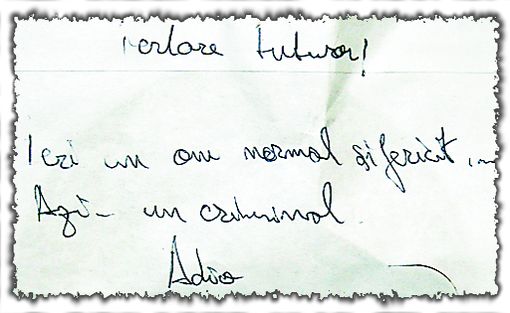 iertare tuturor!
Ieri un om normal și fericit...
Azi- un criminal
Adio